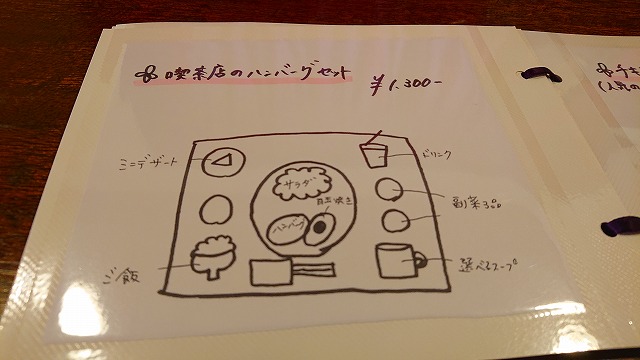 喫茶店のハンバーグセット
¥1.300-
ミニデザート
ドリンク
サラダ
目玉焼き
副菜3品
ハンバーグ
ご飯
選べるスープ
(人気の